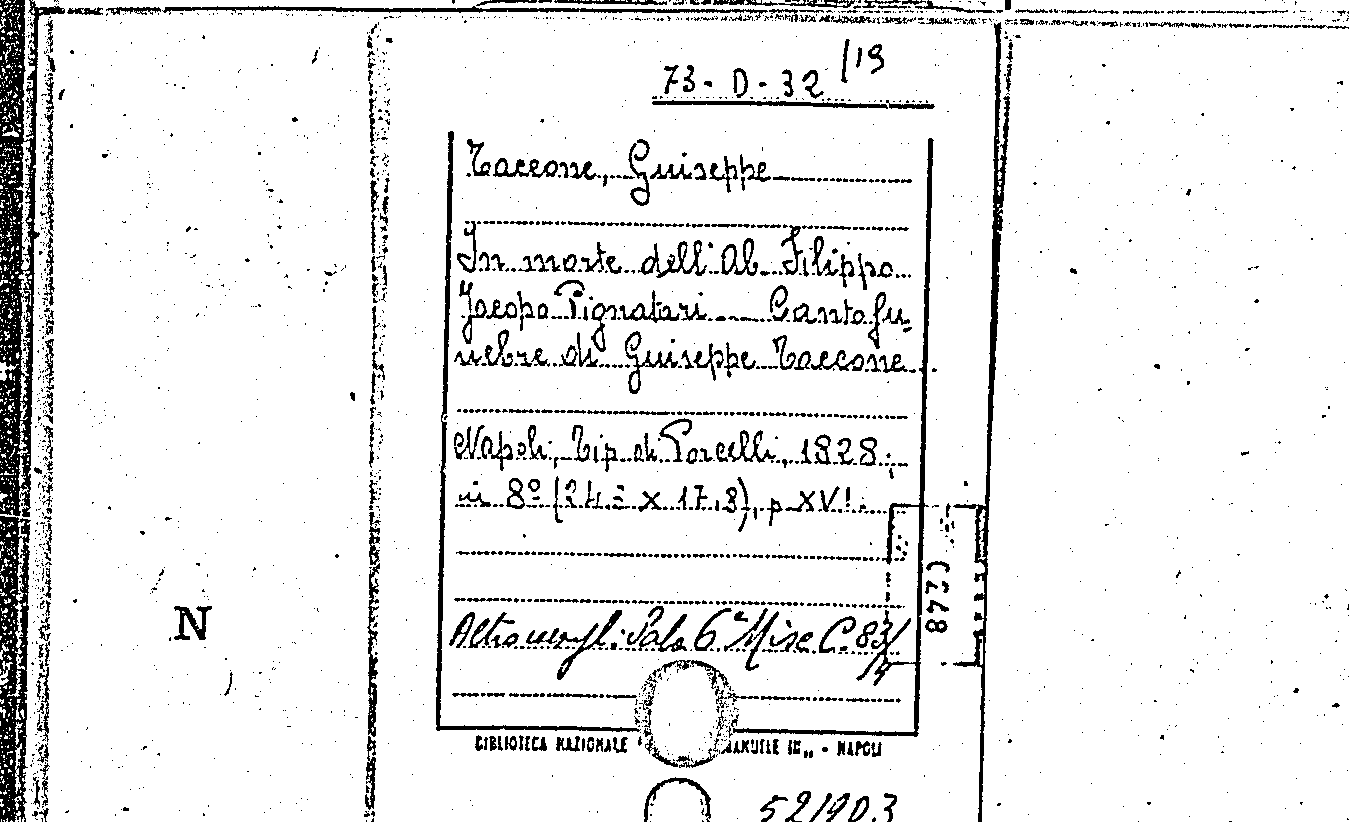 73-D-32/19
Taccone, Giuseppe
In morte dell'Ab. Filippo
Jacopo Pignatari __ Canto fu-
nebre di Giuseppe Taccone.
Napoli, Tip. di Porcelli, 1828;
in 8º (24.= x 17,8), p. XVI.
Altro csempl: Sala 6ª Misc C. 83/
N
BIBLIOTECA NAZIONALE " ANUELE III„ - NAPOLI
521903